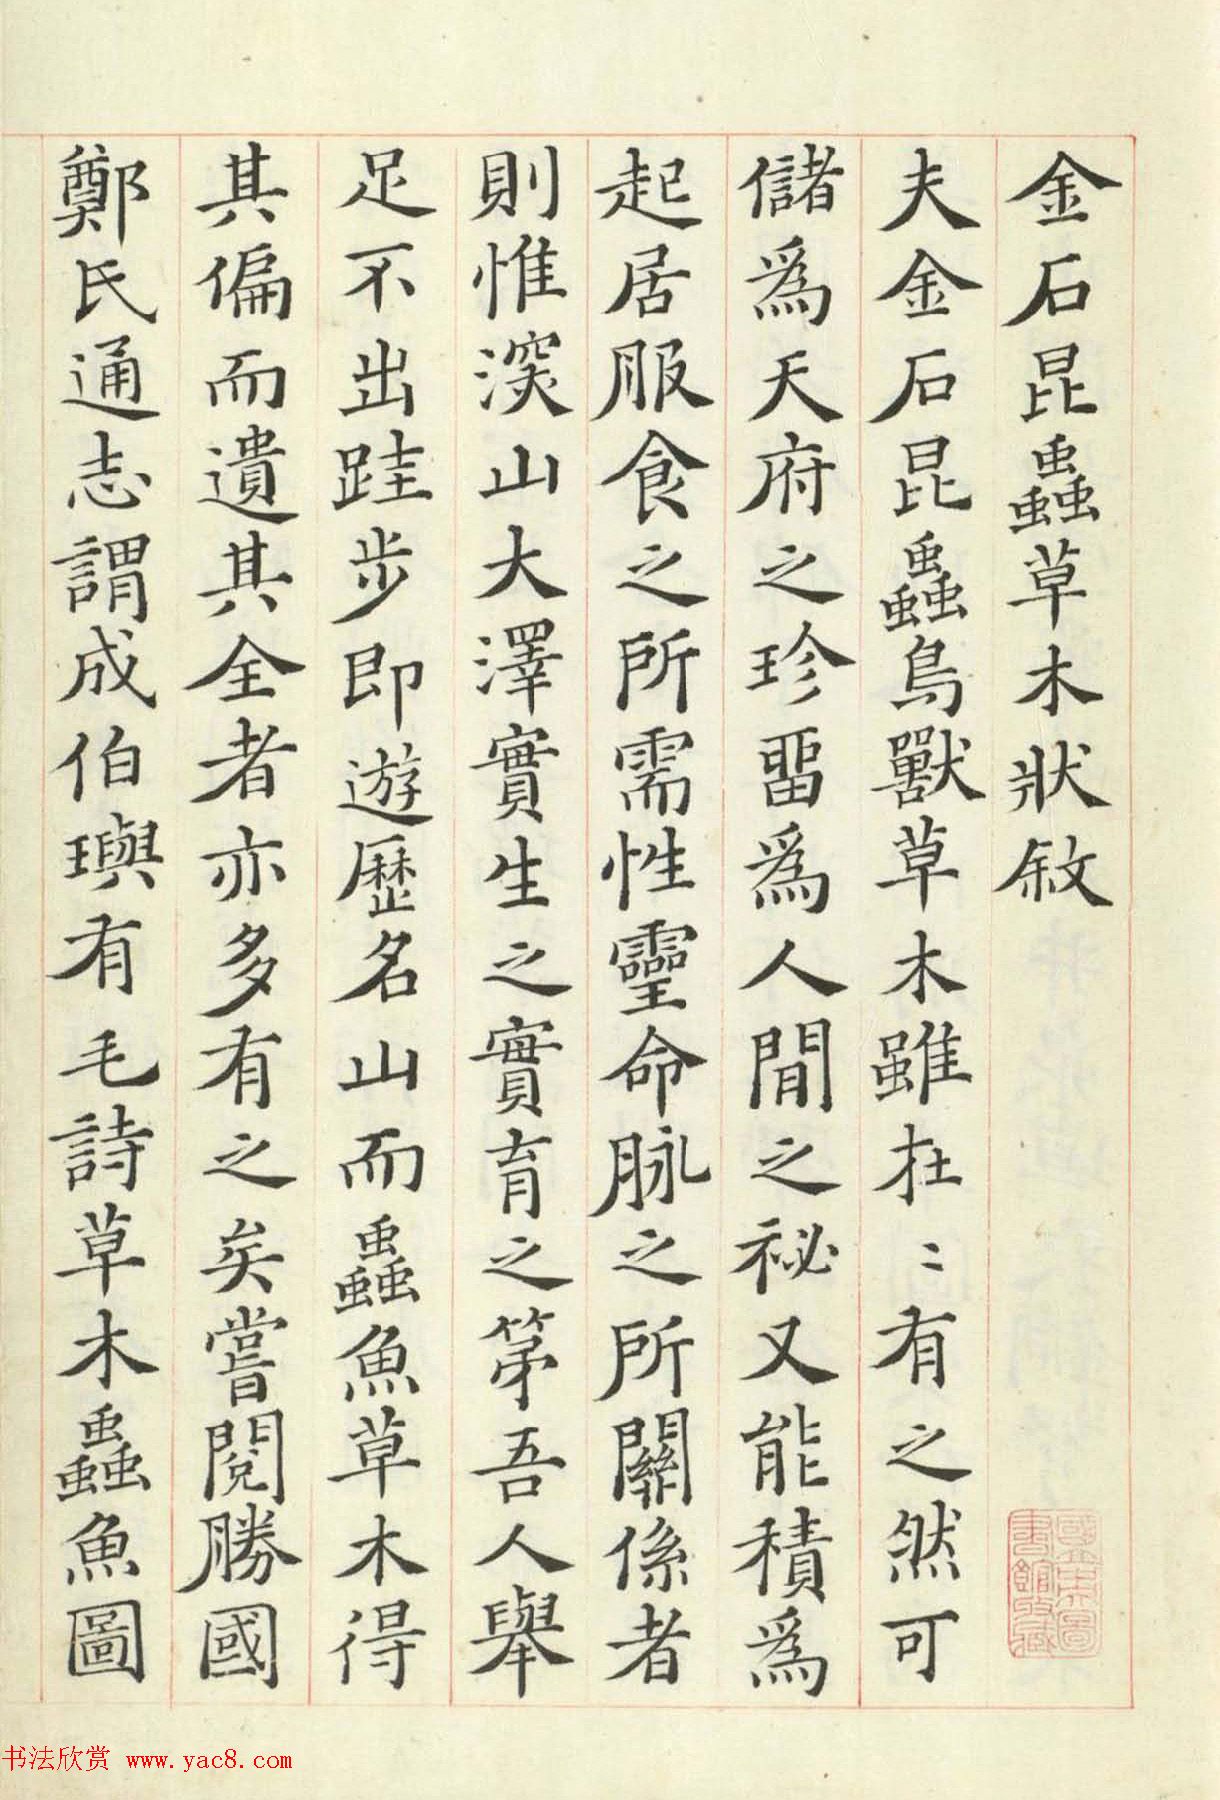 金石昆蟲草木狀敘
夫金石昆蟲鳥獸草木雖在〻有之然可
儲爲天府之珍畱爲人間之祕又能積爲
起居服食之所需性靈命脉之所關係者
則惟深山大澤實生之實育之第吾人舉
足不出跬步即遊歷名山而蟲魚草木得
其偏而遺其全者亦多有之矣嘗閱勝國
鄭氏通志謂成伯璵有毛詩草木蟲魚圖
國立中央圖書館收藏
书法欣赏 www.yac8.com